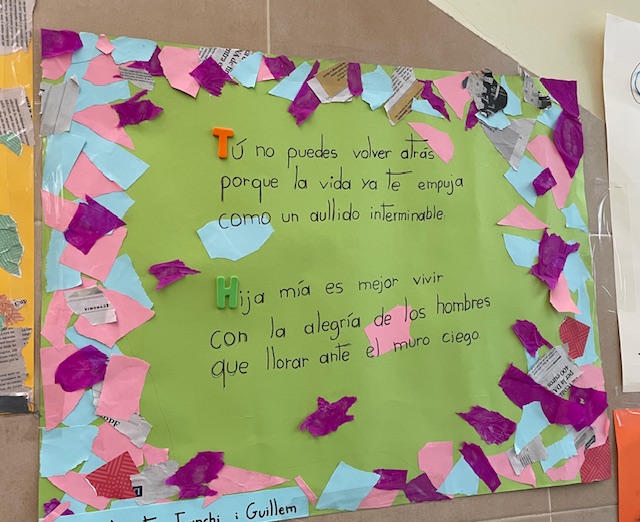 Tú no puedes volver atrás
porque la vida ya te empuja
como un aullido interminable.
Hija mía es mejor vivir
con la alegría de los hombres
que llorar ante el muro ciego.
i Guillem